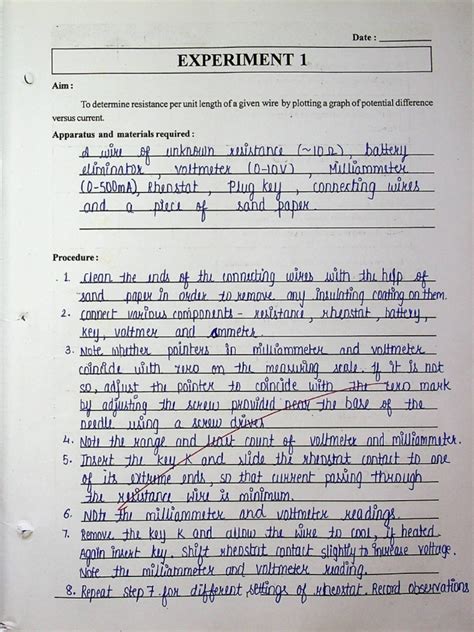 Date :
EXPERIMENT 1
Aim :
To determine resistance per unit length of a given wire by plotting a graph of potential difference
versus current.
Apparatus and materials required :
A wire of unknown resistance (~10Ω), battery
eliminator, voltmeter (0-10V), Milliammeter
(0-500mA), Rheostat, Plug key, connecting wires
and a piece of sand paper.
Procedure :
1. Clean the ends of the connecting wires with the help of
sand paper in order to remove any insulating coating on them.
2. Connect various components - resistance, rheostat, battery,
key, voltmer and ammeter.
3. Note whether pointers in milliammeter and voltmeter
coincide with zero on the measuring scale. If it is not
so, adjust the pointer to coincide with the zero mark
by adjusting the screw provided near the base of the
needle using a screw driver
4. Note the range and least count of voltmeter and milliammeter.
5. Insert the key K and slide the rheostat contact to one
of its extreme ends, so that current passing through
the resistance wire is minimum.
6. Note the milliammeter and voltmeter readings.
7. Remove the key K and allow the wire to cool, if heated.
Again insert key. Shift rheostat contact slightly to increase voltage.
Note the milliammeter and voltmeter reading.
8. Repeat step 7 for different settings of rheostat. Record observations